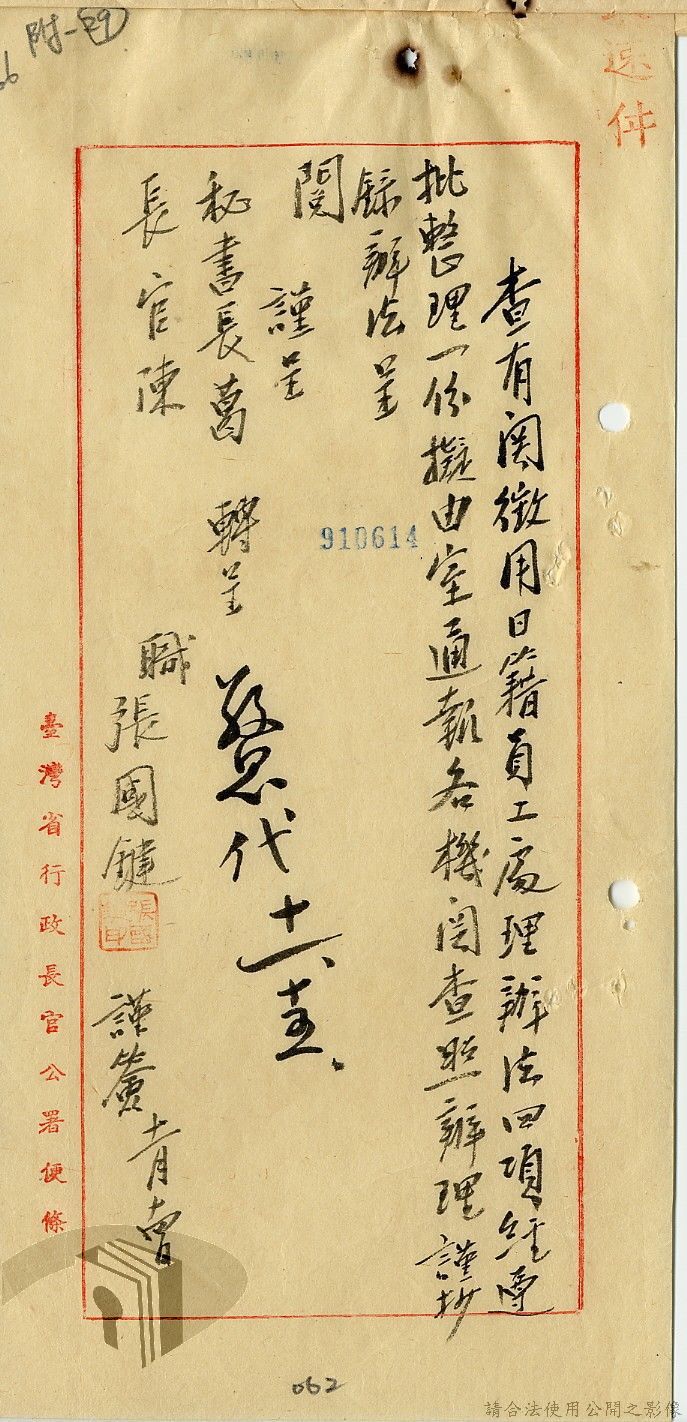 附-29
速件
查有関徵用日籍員工處理辦法四項經遵
批整理一份擬由室通報各機関查照辦理謹抄
錄辦法呈
閱
謹呈
秘書長葛 轉呈
長官陳
職張國鍵 謹簽 十一月十四日
敬恩代 十一、十五、
910614
臺灣省行政長官公署便條
062
請合法使用公開之影像